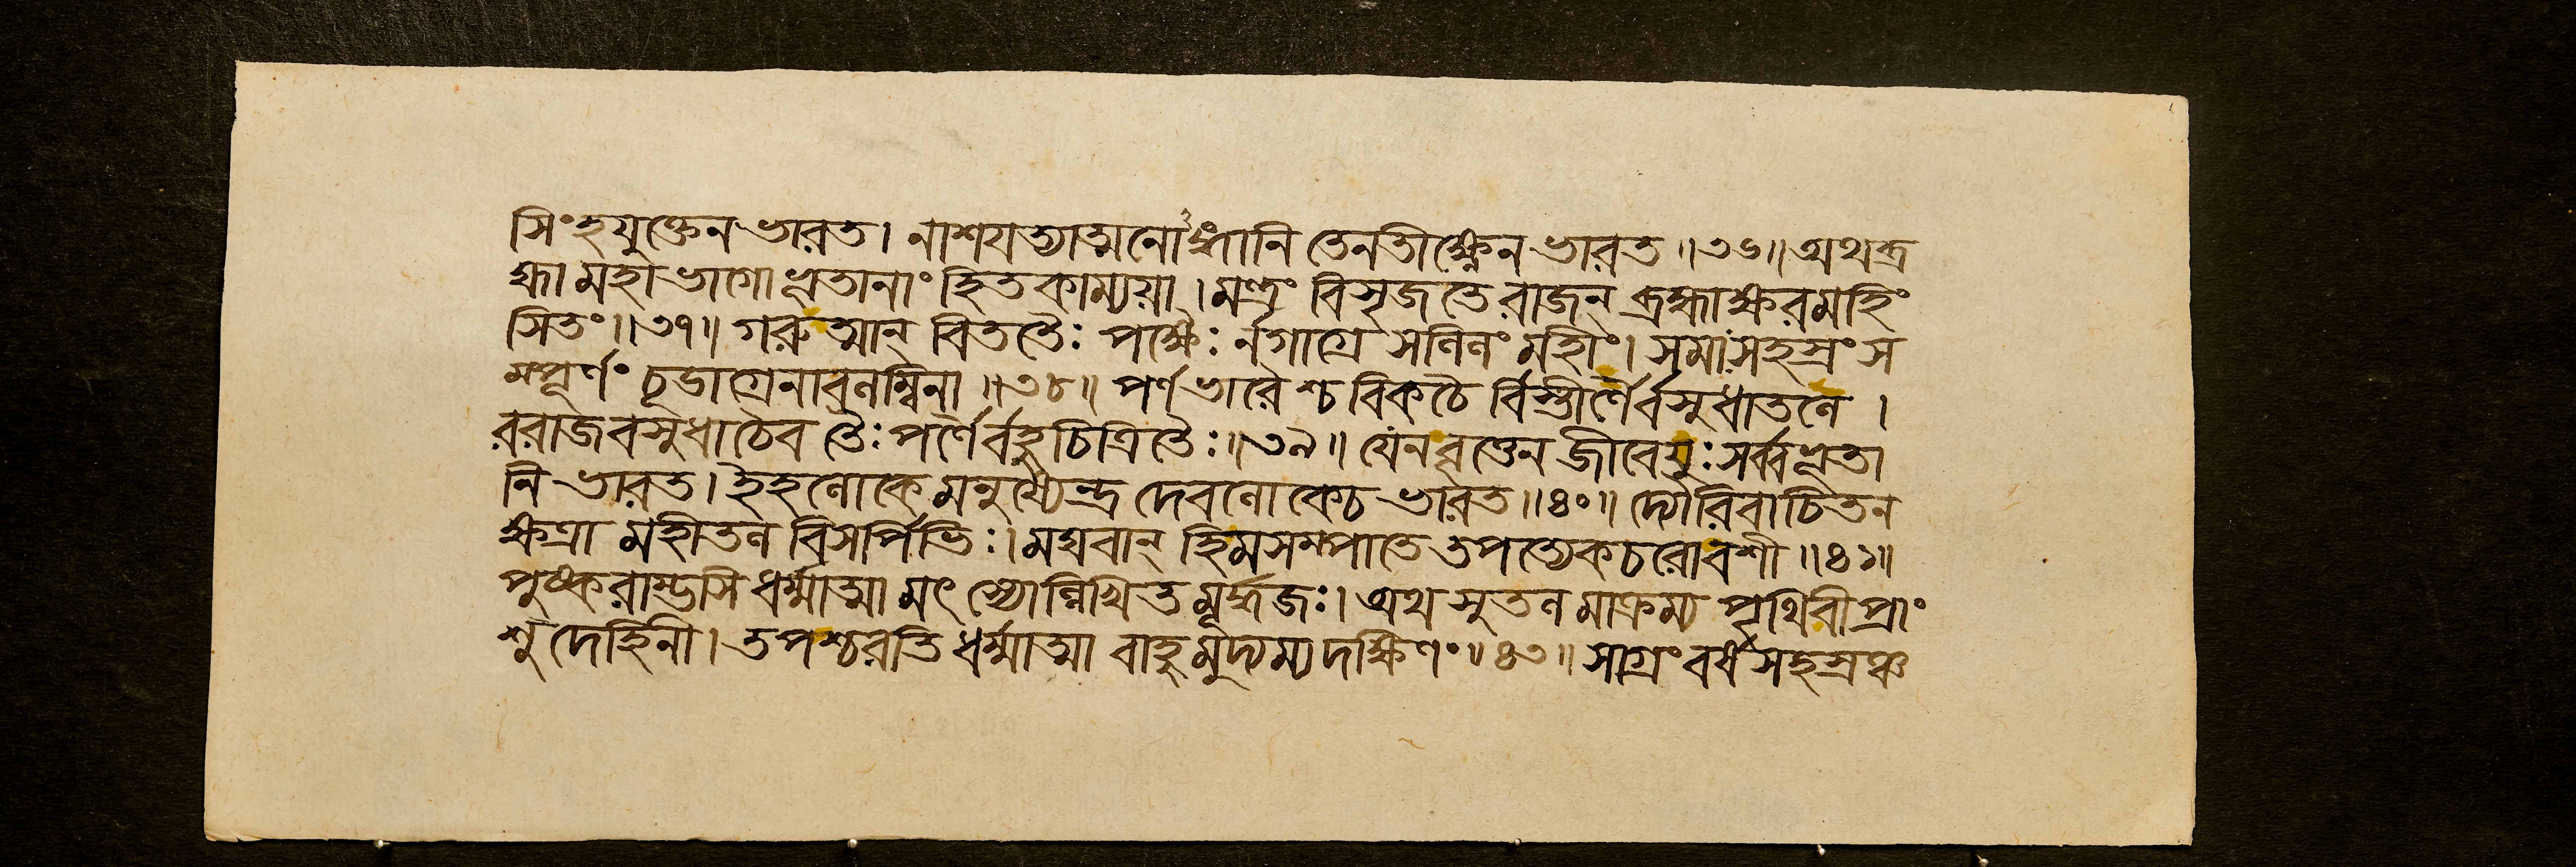 সিংহযুক্তেন ভারত। নাশয়ত্যাত্মনো ঙ্গানি তেনতীক্ষ্ণেন ভারত॥৩৬॥ অথব্র
হ্মা মহাভাগোভূতানাং হিতকাম্যয়া। মন্ত্রং বিসৃজতে রাজন্ ব্রহ্মাক্ষরমহিং
সিতং॥৩৭॥ গরুত্মান্ বিততৈঃ পক্ষৈঃ র্নগাগ্রে সলিলং মহীং। সমাসহস্রং স
ম্পূর্ণং চূডাগ্রেনাবলম্বিনা॥৩৮॥ পর্ণভারৈশ্চ বিকচৈ র্বিস্তীর্ণৈর্বসুধাতলে।
ররাজ বসুধাচৈব তৈঃ পর্ণৈর্বহুচিত্রিতৈঃ॥৩৯॥ যেন বৃত্তেন জীবেয়ুঃ সর্ব্বভূতা
নি ভারত। ইহলোকে মনুষ্যেন্দ্র দেবলোকেচ ভারত॥৪০॥ দ্যৌরিবাচিতন
ক্ষত্রা মহীতল বিসর্পিভিঃ। মঘবান্ হিমসম্পাতে তপত্যেকচরোবশী॥৪১॥
পুষ্করাম্ভসি ধর্ম্মাত্মা মৎস্যোল্লিখিত মূর্দ্ধজঃ। অথ সুতল মাক্রম্য পৃথিবীপ্রাং
শু দেহিনী। তপশ্চরতি ধর্ম্মাত্মা বাহুমুদ্যম্য দক্ষিণং॥৪৩॥ সাগ্রং বর্ষসহস্রঞ্চ